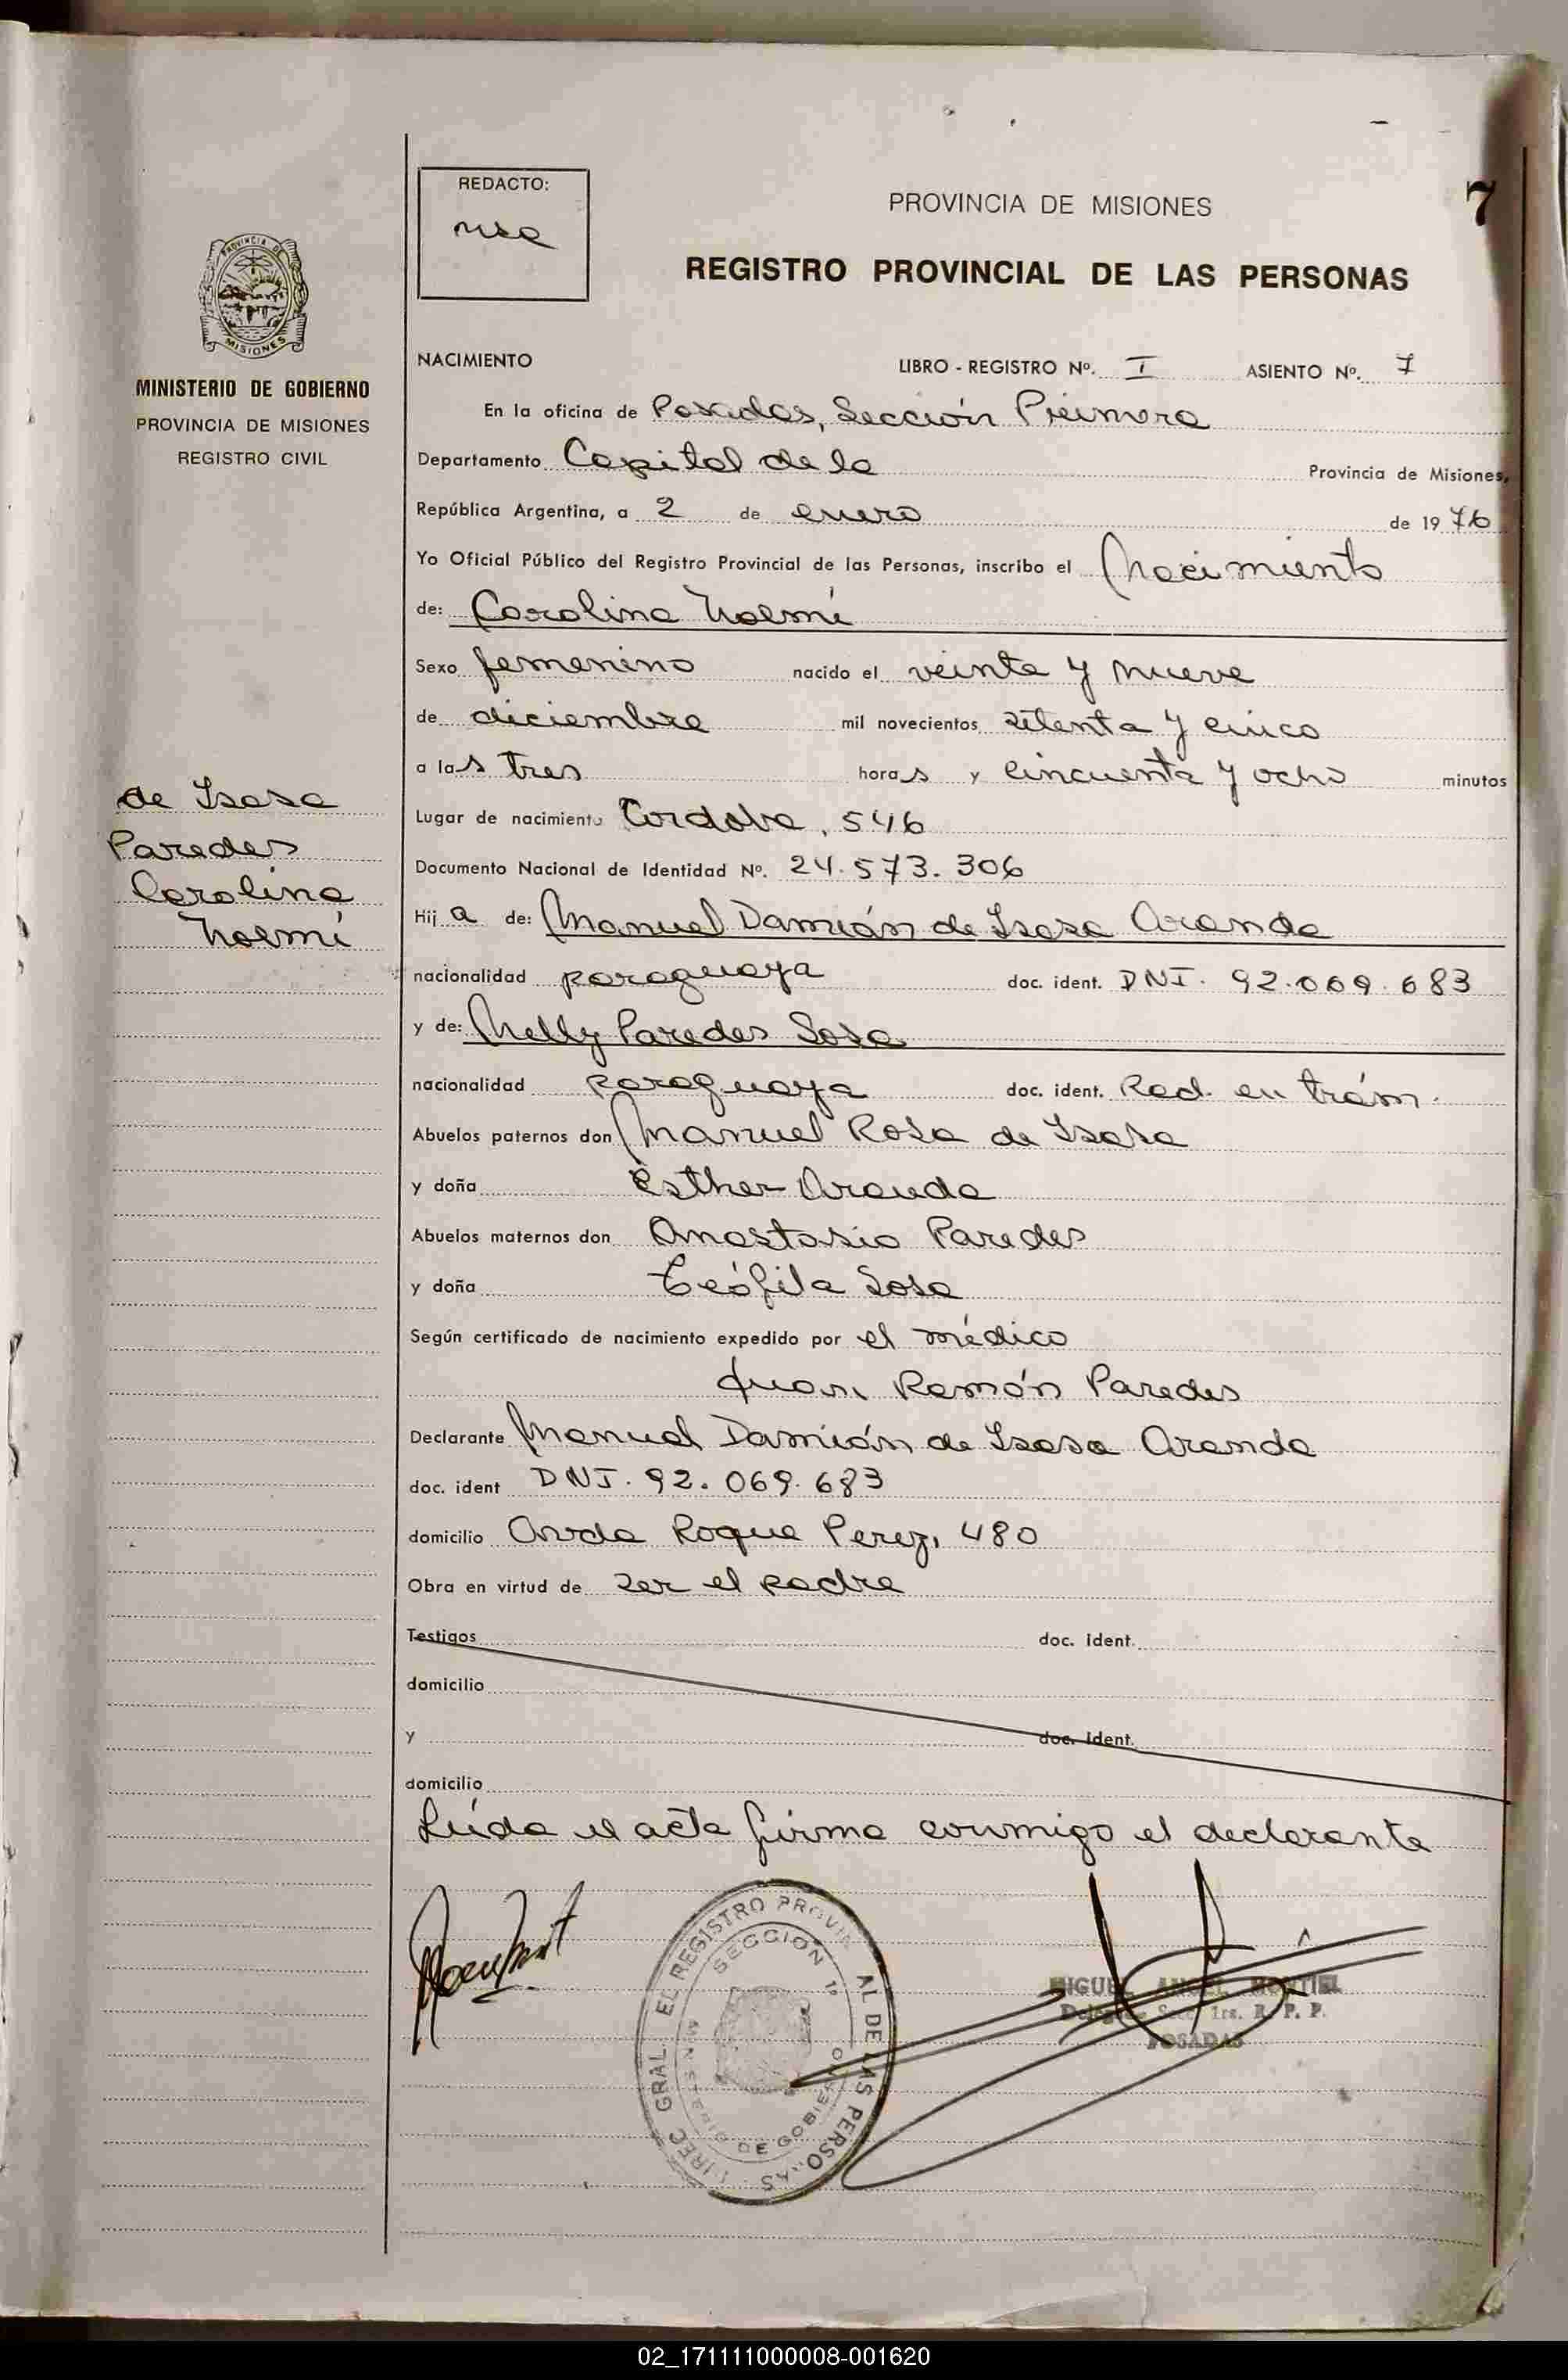 7
REDACTO:
PROVINCIA DE MISIONES
REGISTRO PROVINCIAL DE LAS PERSONAS
PROVINCIA DE
MISIONES
MINISTERIO DE GOBIERNO
PROVINCIA DE MISIONES
REGISTRO CIVIL
de Isasa
Paredes
Carolina
Noemí
NACIMIENTO LIBRO - REGISTRO Nº. I ASIENTO Nº. 7
En la oficina de Posadas, Sección Primera
Departamento Capital de la Provincia de Misiones,
República Argentina, a 2 de enero de 1976
Yo Oficial Público del Registro Provincial de las Personas, inscribo el Nacimiento
de: Carolina Noemí
Sexo femenino nacido el veinte y nueve
de diciembre mil novecientos setenta y cinco
a las tres horas y cincuenta y ocho minutos
Lugar de nacimiento Cordoba, 546
Documento Nacional de Identidad Nº. 24.573.306
Hija de: Manuel Damián de Isasa Aranda
nacionalidad paraguaya doc. ident. DNI. 92.069.683
y de: Nelly Paredes Sosa
nacionalidad paraguaya doc. ident. Rad. en trám.
Abuelos paternos don Manuel Rosa de Isasa
y doña Esther Aranda
Abuelos maternos don Anastasio Paredes
y doña Teófila Sosa
Según certificado de nacimiento expedido por el médico
Juan Ramón Paredes
Declarante Manuel Damián de Isasa Aranda
doc. ident DNI. 92.069.683
domicilio Avda Roque Perez, 480
Obra en virtud de ser el padre
Testigos doc. ident.
domicilio
y doc. ident.
domicilio
Leída el acta firma conmigo el declarante
DIREC GRAL. EL REGISTRO PROVIN AL DE LAS PERSONAS
SECCION 1º
MINISTERIO DE GOBIERNO
MIGUEL ANGEL MONTIEL
Delegado Secc. 1ra. R. P. P.
POSADAS
02_171111000008-001620